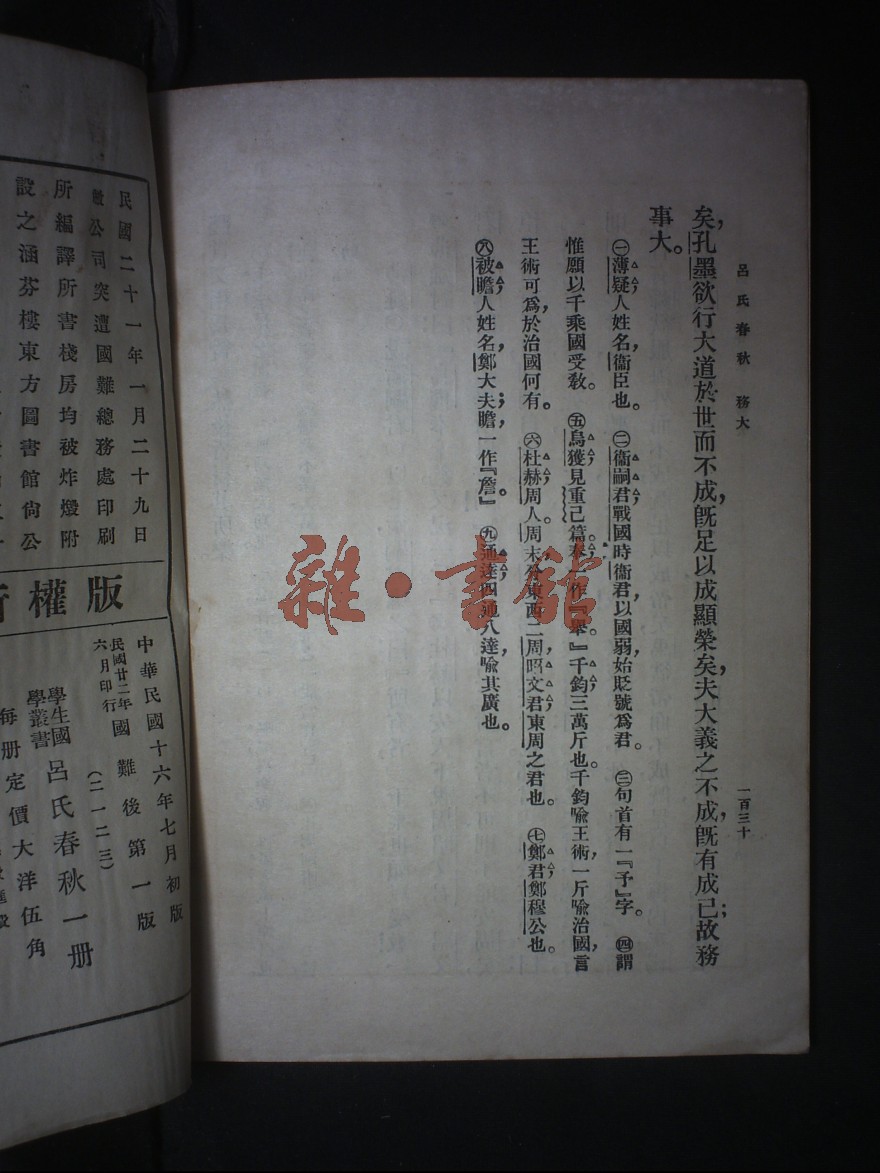 呂氏春秋 務大
一百三十
矣，孔墨欲行大道於世而不成，既足以成顯榮矣夫大義之不成，既有成已；故務
事大。
㊀薄疑，人姓名，衞臣也。 ㊁衞嗣君，戰國時衞君以國弱，始貶號爲君。 ㊂句首有一『予』字。 ㊃謂
惟願以千乘國受教。 ㊄烏獲，見重己篇。舉，一作『舉。』千鈞，三萬斤也。千鈞喻王術，一斤喻治國，言
王術可爲，於治國何有。 ㊅杜赫，周人。周末分東西二周，昭文君，東周之君也。 ㊆鄭君，鄭穆公也。
㊇被瞻，人姓名，鄭大夫；瞻，一作『詹。』 ㊈通達，四通八達，喻其廣也。
雜·書館
民國二十一年一月二十九日
敝公司突遭國難總務處印刷
所編譯所書棧房均被炸燬附
設之涵芬樓東方圖書館尙公
版權
中華民國十六年七月初版
民國廿二年六月印行 國難後第一版
(二一二三)
學生國學叢書 呂氏春秋一册
每册定價大洋伍角